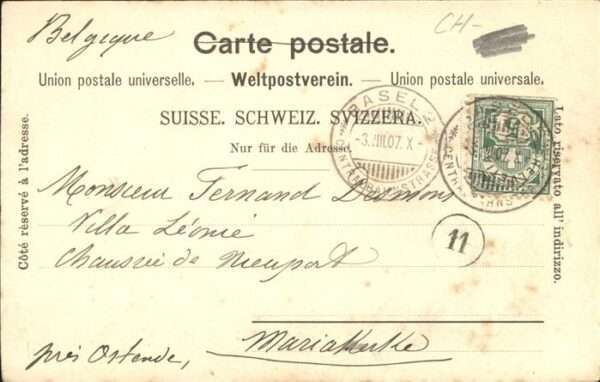 Belgique
CH-
Carte postale.
Union postale universelle. — Weltpostverein. — Unione postale universale.
SUISSE. SCHWEIZ. SVIZZERA.
Nur für die Adresse.
BASEL 2
-3.VIII.07.X-
CENTRALBAHNSTRASSE
Côté réservé à l'adresse.
Lato riservato all' indirizzo.
Monsieur Fernand Desmons
Villa Léonie
11
Chaussée de Nieuport
près Ostende, Mariakerke